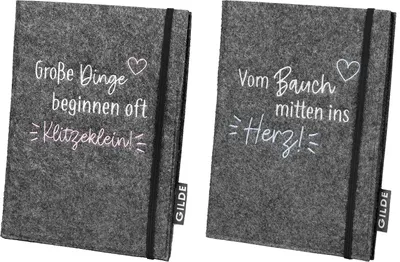 Große Dinge
beginnen oft
Klitzeklein!
GILDE
Vom Bauch
mitten ins
Herz!
GILDE